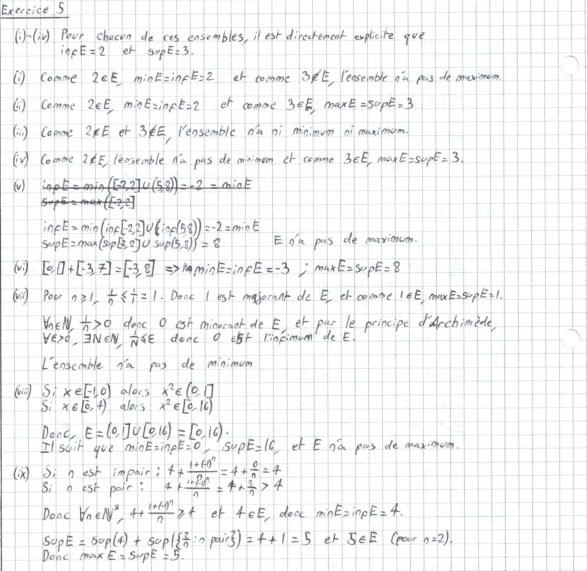 Exercice 5
(i)-(iv) Pour chacun de ces ensembles, il est directement explicite que
inf E = 2 et sup E = 3.
(i) Comme 2∈E, min E = inf E = 2 et comme 3∉E, l'ensemble n'a pas de maximum.
(ii) Comme 2∈E, min E = inf E = 2 et comme 3∈E, max E = sup E = 3
(iii) Comme 2∉E et 3∉E, l'ensemble n'a ni minimum ni maximum.
(iv) Comme 2∉E, l'ensemble n'a pas de minimum et comme 3∈E, max E = sup E = 3.
(v) inf E = min([-2,2]∪(5,8)) = -2 = min E
sup E = max([-2,2]
inf E = min(inf[-2,2]∪(inf(5,8)) = -2 = min E
sup E = max(sup[-2,2]∪ sup(5,8)) = 8 E n'a pas de maximum.
(vi) [0,1]+[-3,7]=[-3,8] => min E = inf E = -3 ; max E = sup E = 8
(vii) Pour n≥1, 1/n ≤ 1/1 = 1. Donc 1 est majorant de E, et comme 1∈E, max E = sup E = 1.
∀n∈ℕ, 1/n > 0 donc 0 est minorant de E, et par le principe d'Archimède,
∀ε>0, ∃N∈ℕ, 1/N ≤ ε donc 0 est l'infimum de E.
L'ensemble n'a pas de minimum
(viii) Si x∈[-1,0) alors x²∈(0,1]
Si x∈[0,4) alors x²∈[0,16)
Donc, E = (0,1]∪[0,16) = [0,16).
Il suit que min E = inf E = 0, sup E = 16, et E n'a pas de maximum.
(ix) Si n est impair : 4 + (1+(-1)ⁿ)/n = 4 + 0/n = 4
Si n est pair : 4 + (1+(-1)ⁿ)/n = 4 + 2/n > 4
Donc ∀n∈ℕ*, 4 + (1+(-1)ⁿ)/n ≥ 4 et 4∈E, donc min E = inf E = 4.
sup E = sup(4) + sup({2/n : n pair}) = 4 + 1 = 5 et 5∈E (pour n=2).
Donc max E = sup E = 5.